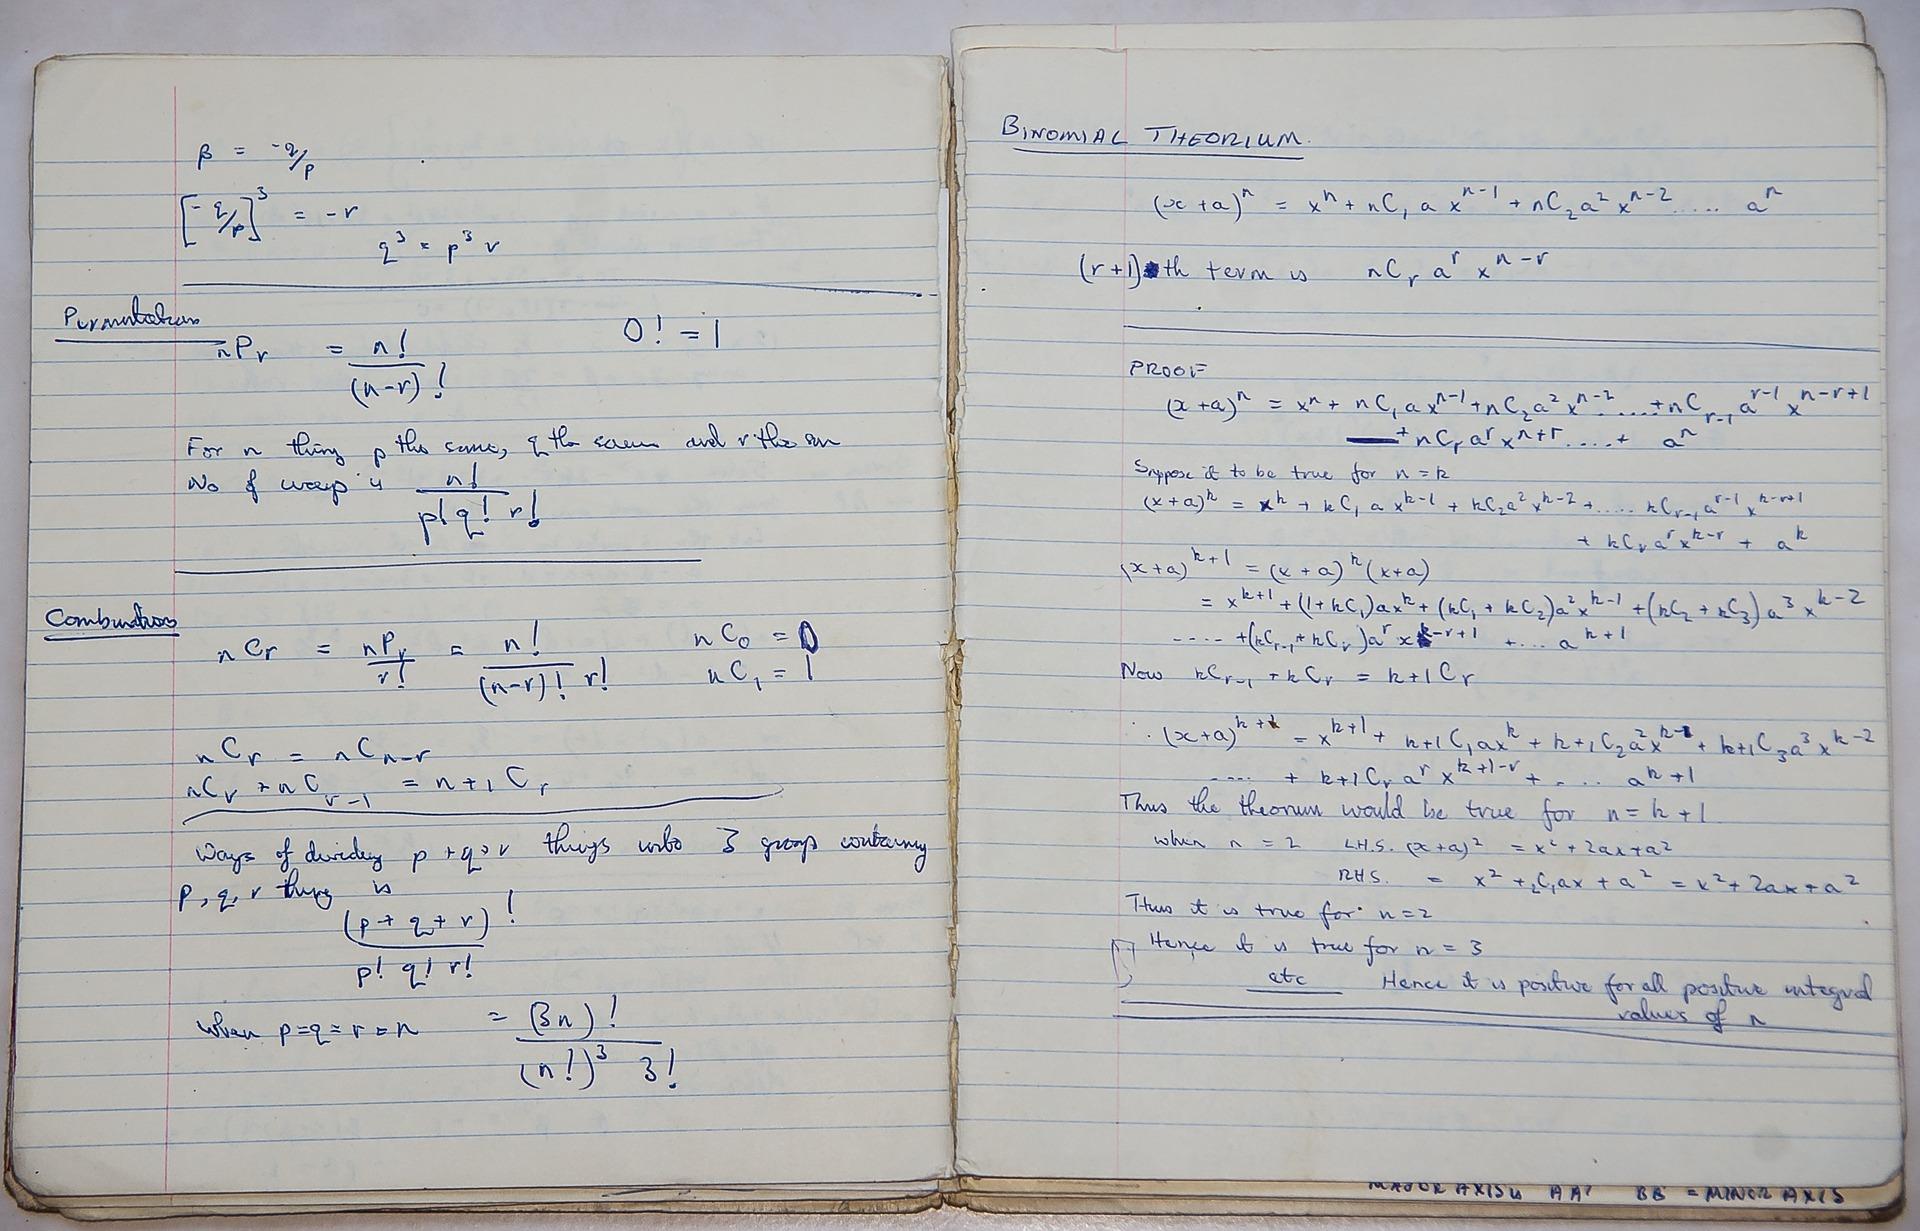 β = -q/p
[-q/p]³ = -r
q³ = p³ r
Permutations
nPr = n!/(n-r)!     0! = 1
For n thing p the same, q the same and r the sm
No of ways is n!/(p! q! r!)
Combinations
nCr = nPr/r! = n!/((n-r)! r!)     nC₀ = 0
nC₁ = 1
nCr = nCn-r
nCr + nCr-1 = n+1Cr
Ways of dividing p + q + r things into 3 group containing
p, q, r thing is
(p + q + r)!/(p! q! r!)
When p = q = r = n = (3n)!/((n!)³ 3!)
BINOMIAL THEORIUM.
(x + a)ⁿ = xⁿ + nC₁ a xⁿ⁻¹ + nC₂ a² xⁿ⁻² ..... aⁿ
(r+1) th term is nCr aʳ xⁿ⁻ʳ
PROOF
(x + a)ⁿ = xⁿ + nC₁ a xⁿ⁻¹ + nC₂ a² xⁿ⁻² ..... + nCr-1 aʳ⁻¹ xⁿ⁻ʳ⁺¹
+ nCr aʳ xⁿ⁺ʳ ..... + aⁿ
Suppose it to be true for n = k
(x + a)ᵏ = xᵏ + kC₁ a xᵏ⁻¹ + kC₂ a² xᵏ⁻² + ..... kCr-1 aʳ⁻¹ xᵏ⁻ʳ⁺¹
+ kCr aʳ xᵏ⁻ʳ + aᵏ
(x + a)ᵏ⁺¹ = (x + a)ᵏ (x + a)
= xᵏ⁺¹ + (1 + kC₁) a xᵏ + (kC₁ + kC₂) a² xᵏ⁻¹ + (kC₂ + kC₃) a³ xᵏ⁻²
.... + (kCr-1 + kCr) aʳ xᵏ⁻ʳ⁺¹ + ... aᵏ⁺¹
Now kCr-1 + kCr = k+1Cr
∴ (x + a)ᵏ⁺¹ = xᵏ⁺¹ + k+1C₁ a xᵏ + k+1C₂ a² xᵏ⁻¹ + k+1C₃ a³ xᵏ⁻²
.... + k+1Cr aʳ xᵏ⁺¹⁻ʳ + .... aᵏ⁺¹
Thus the theorum would be true for n = k + 1
when n = 2 L.H.S. (x + a)² = x² + 2ax + a²
RHS. = x² + ₂C₁ax + a² = x² + 2ax + a²
Thus it is true for n = 2
Hence it is true for n = 3
etc Hence it is positive for all positive integral
values of n
MAJOR AXIS is AA' BB' = MINOR AXIS